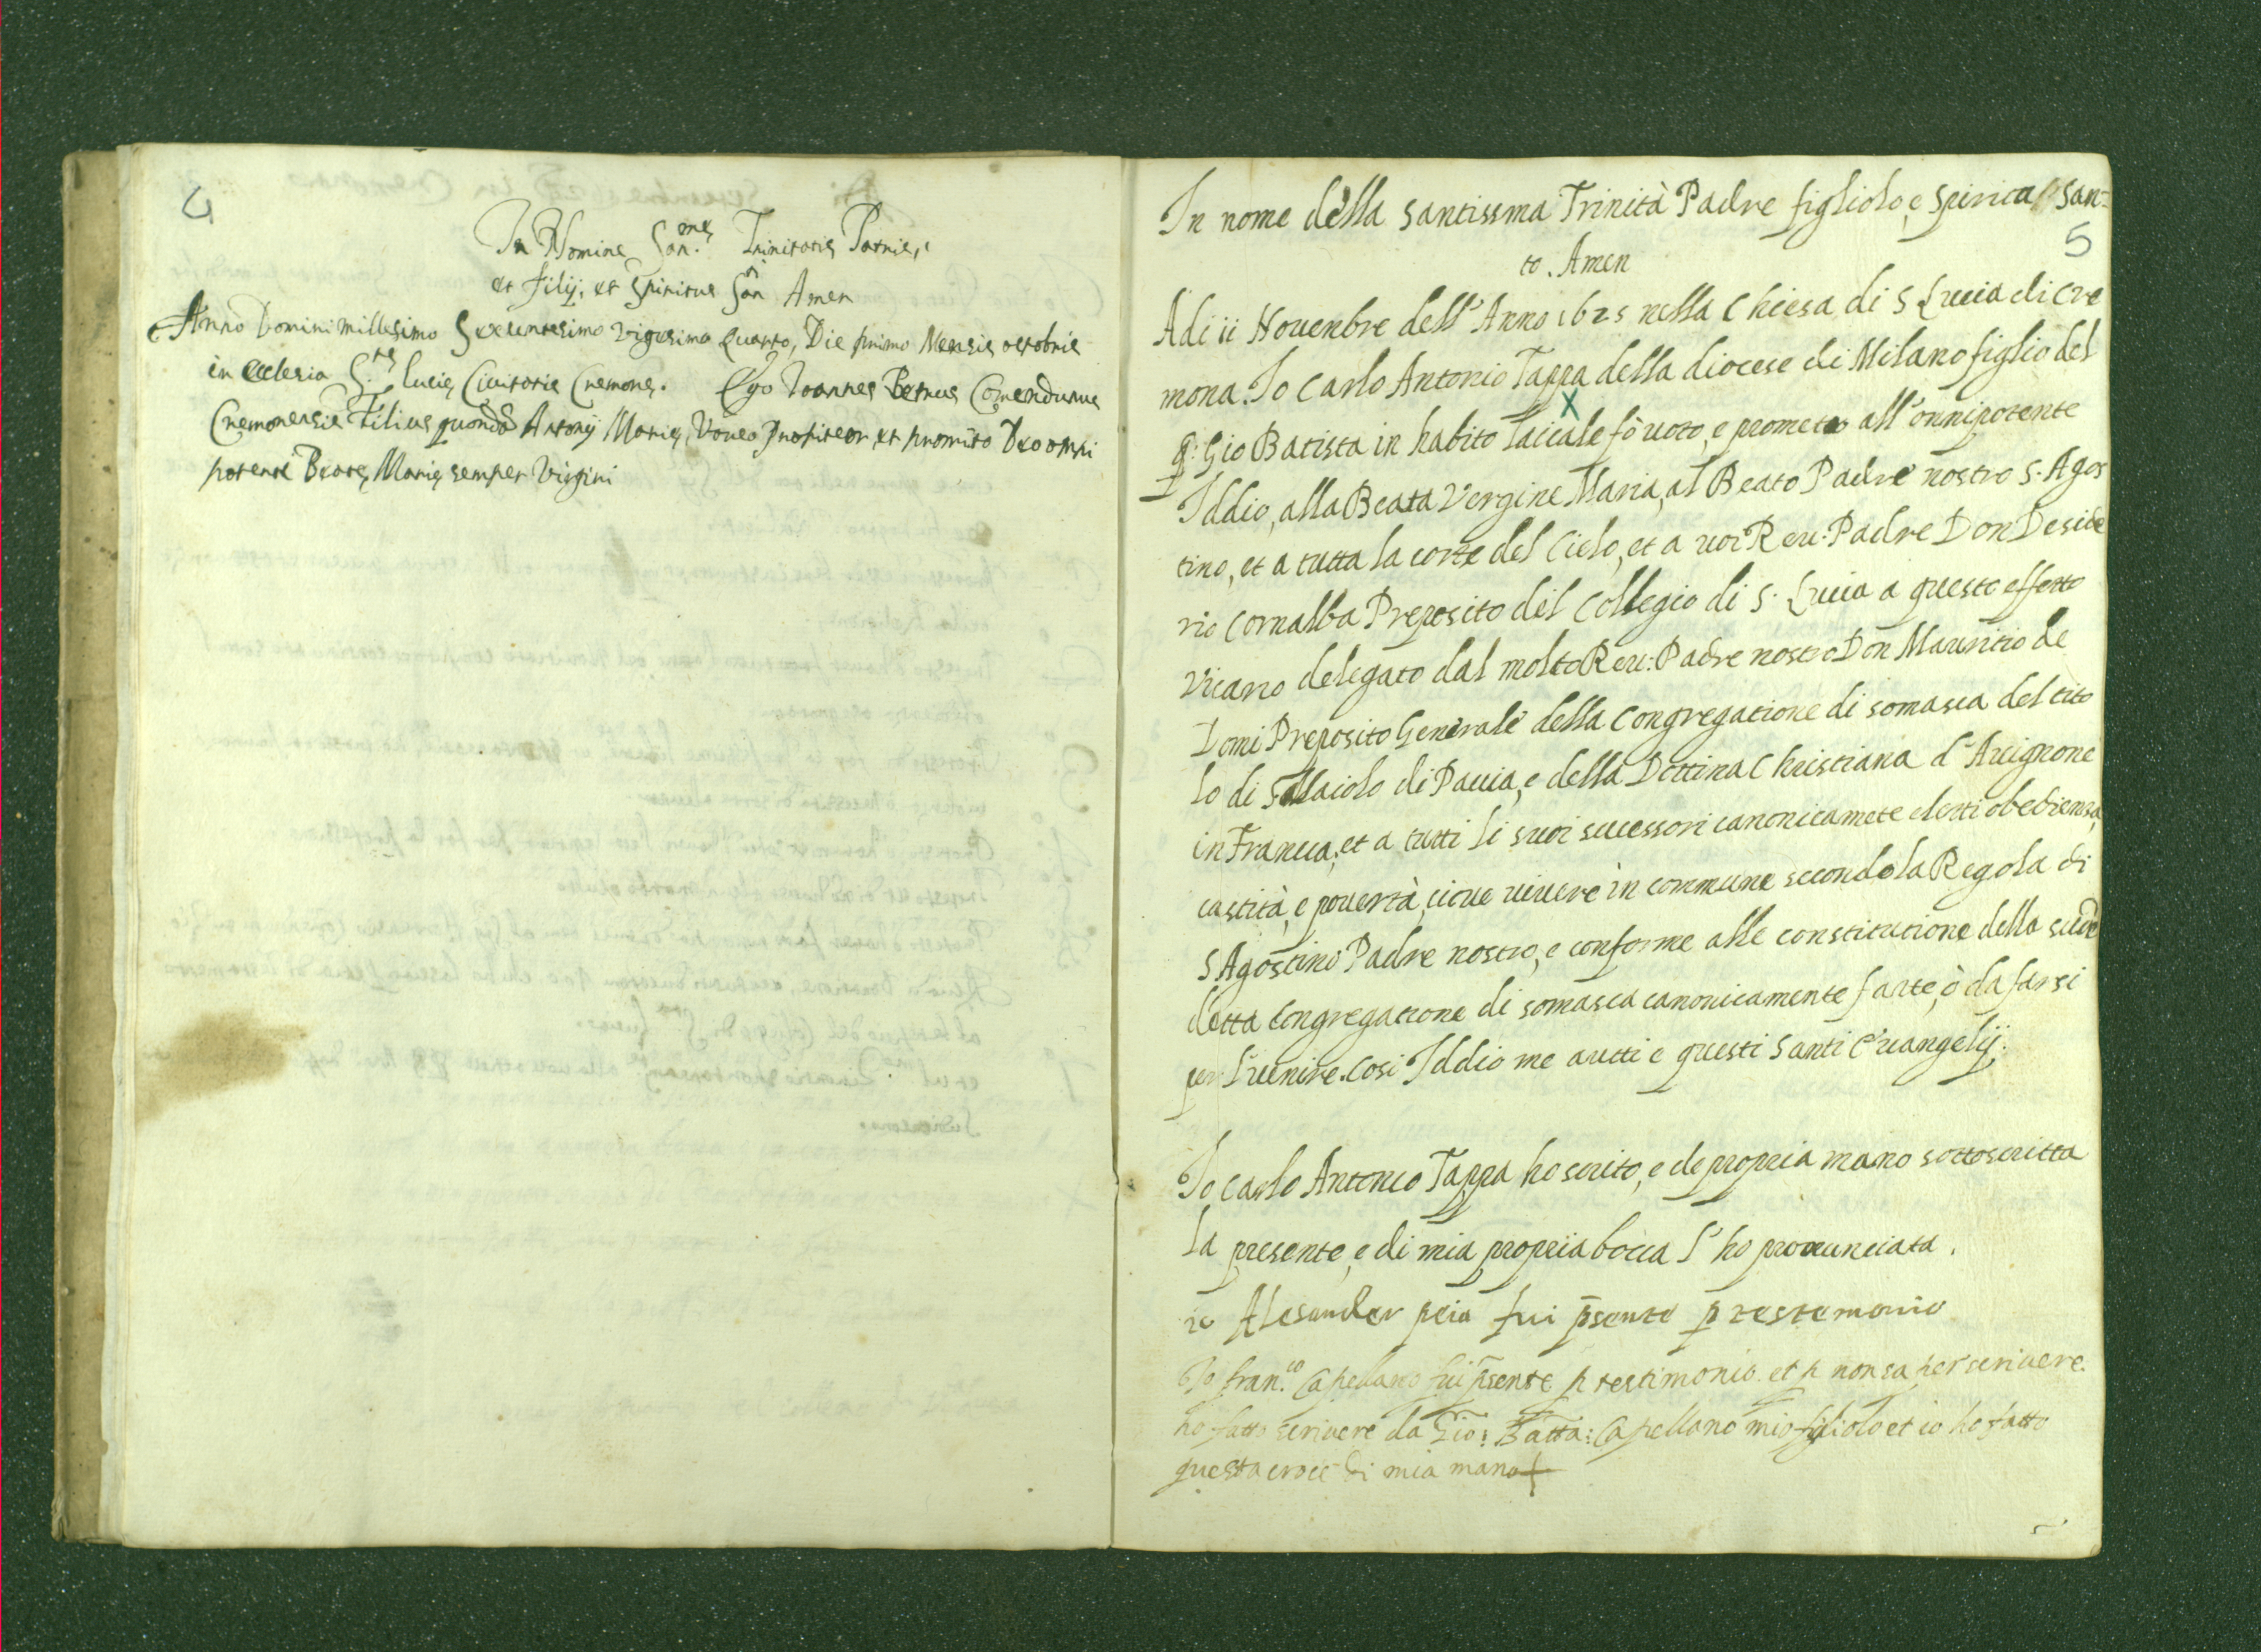 4
In Nomine San.mę Trinitatis Patris,
et filij, et Spiritus San Amen
Anno Domini millesimo Sexcentesimo vigesimo quarto, Die primo Mensis octobris
in ecclesia S.tę Lucię Civitatis Cremonę. Ego Ioannes Petrus Comendunus
Cremonensis Filius quondã Antonij Marię, Voveo Profiteor, et promito Deo omni
potenti Beatę Marię semper Virgini
5
In nome della santissma Trinità Padre figliolo, e spirita san=
to. Amen
Adi ii Nouenbre dell'Anno 1625 nella Chiesa di S Lucia di Cre
mona. Io Carlo Antonio Tappa della diocese di Milano figlio del
q: Gio Batista in habito laicale fò uoto, e prometo all'onnipotente
Iddio, alla Beata Vergine Maria, al Beato Padre nostro S. Agos
tino, et a tutta la corte del Cielo, et a uoi Reu: Padre Don Deside
rio Cornalba Preposito del Collegio di S. Lucia a questo effetto
Vicario delegato dal molto Reu: Padre nostro Don Mauritio de
Domi Preposito Generale della Congregatione di somasca del tito
lo di S Maiolo di Pauia, e della Dottina Christiana d'Auignone
in Francia, et a tutti li suoi sucessori canonicamete eletti obedienza,
castità, e pouertà, cioue uiuere in commune secondo la Regola di
S Agostino Padre nostro, e conforme alle constitutione della sude
detta Congregatione di somasca canonicamente farte, ò da farsi
per l'uenire. Cosi Iddio me autti e questi Santi Euangelij.
Io Carlo Antonio Tappa ho scrito, e de propria mano sottoscritta
la presente, e di mia propria bocca l'ho pronunciata.
io Alesander peia fui p̄sente p testemonio
Io fran.co Capellano fui p̄sente p testimonio. et p non saper scriuere.
ho fatto scriuere da Gio: Batta: Capellano mio figliolo et io ho fatto
questa croce di mia mano +